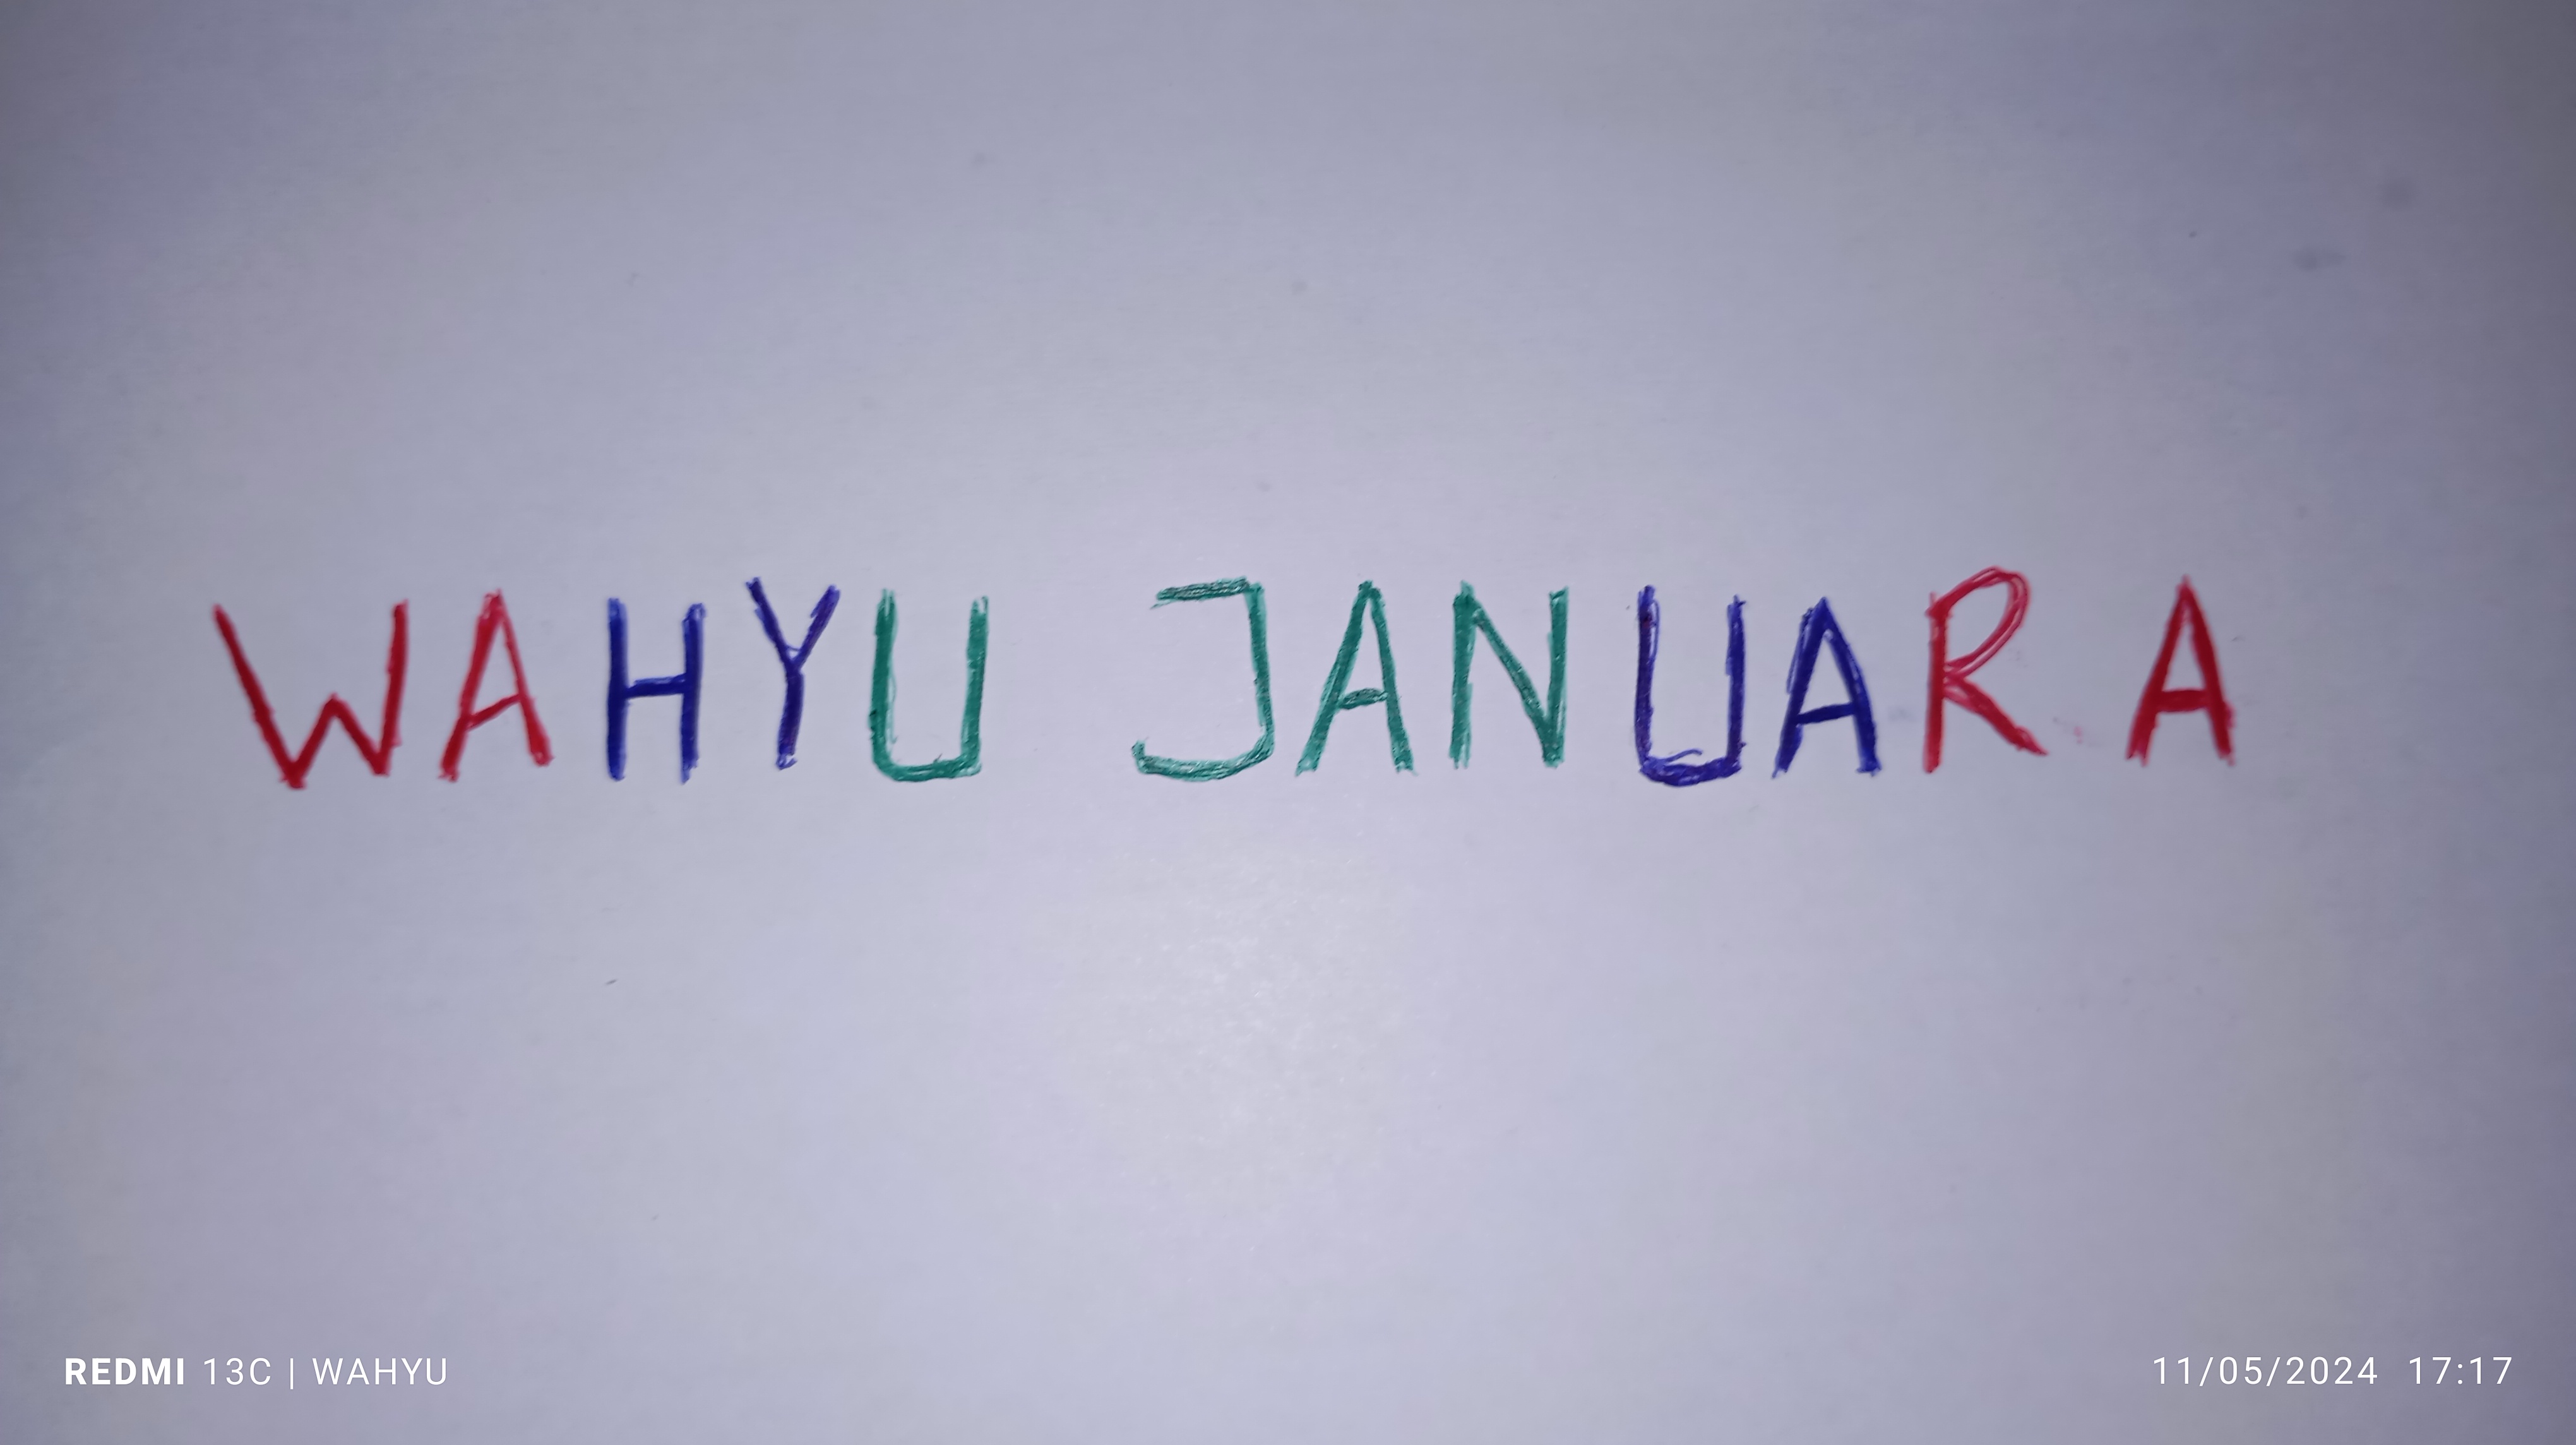 WAHYU JANUARA
REDMI 13C | WAHYU
11/05/2024 17:17